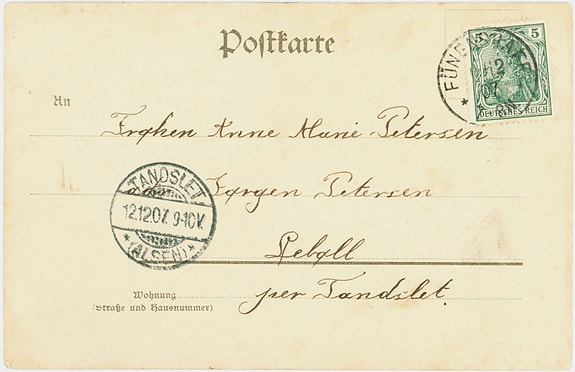 Postkarte
5 5
DEUTSCHES REICH
12
07
An
Frøken Anne Marie Petersen
Jørgen Petersen
TANDSLET
12.12.07. 9-10V.
* (ALSEN) *
Lebøll
per Tandslet.
Wohnung
(Straße und Hausnummer)